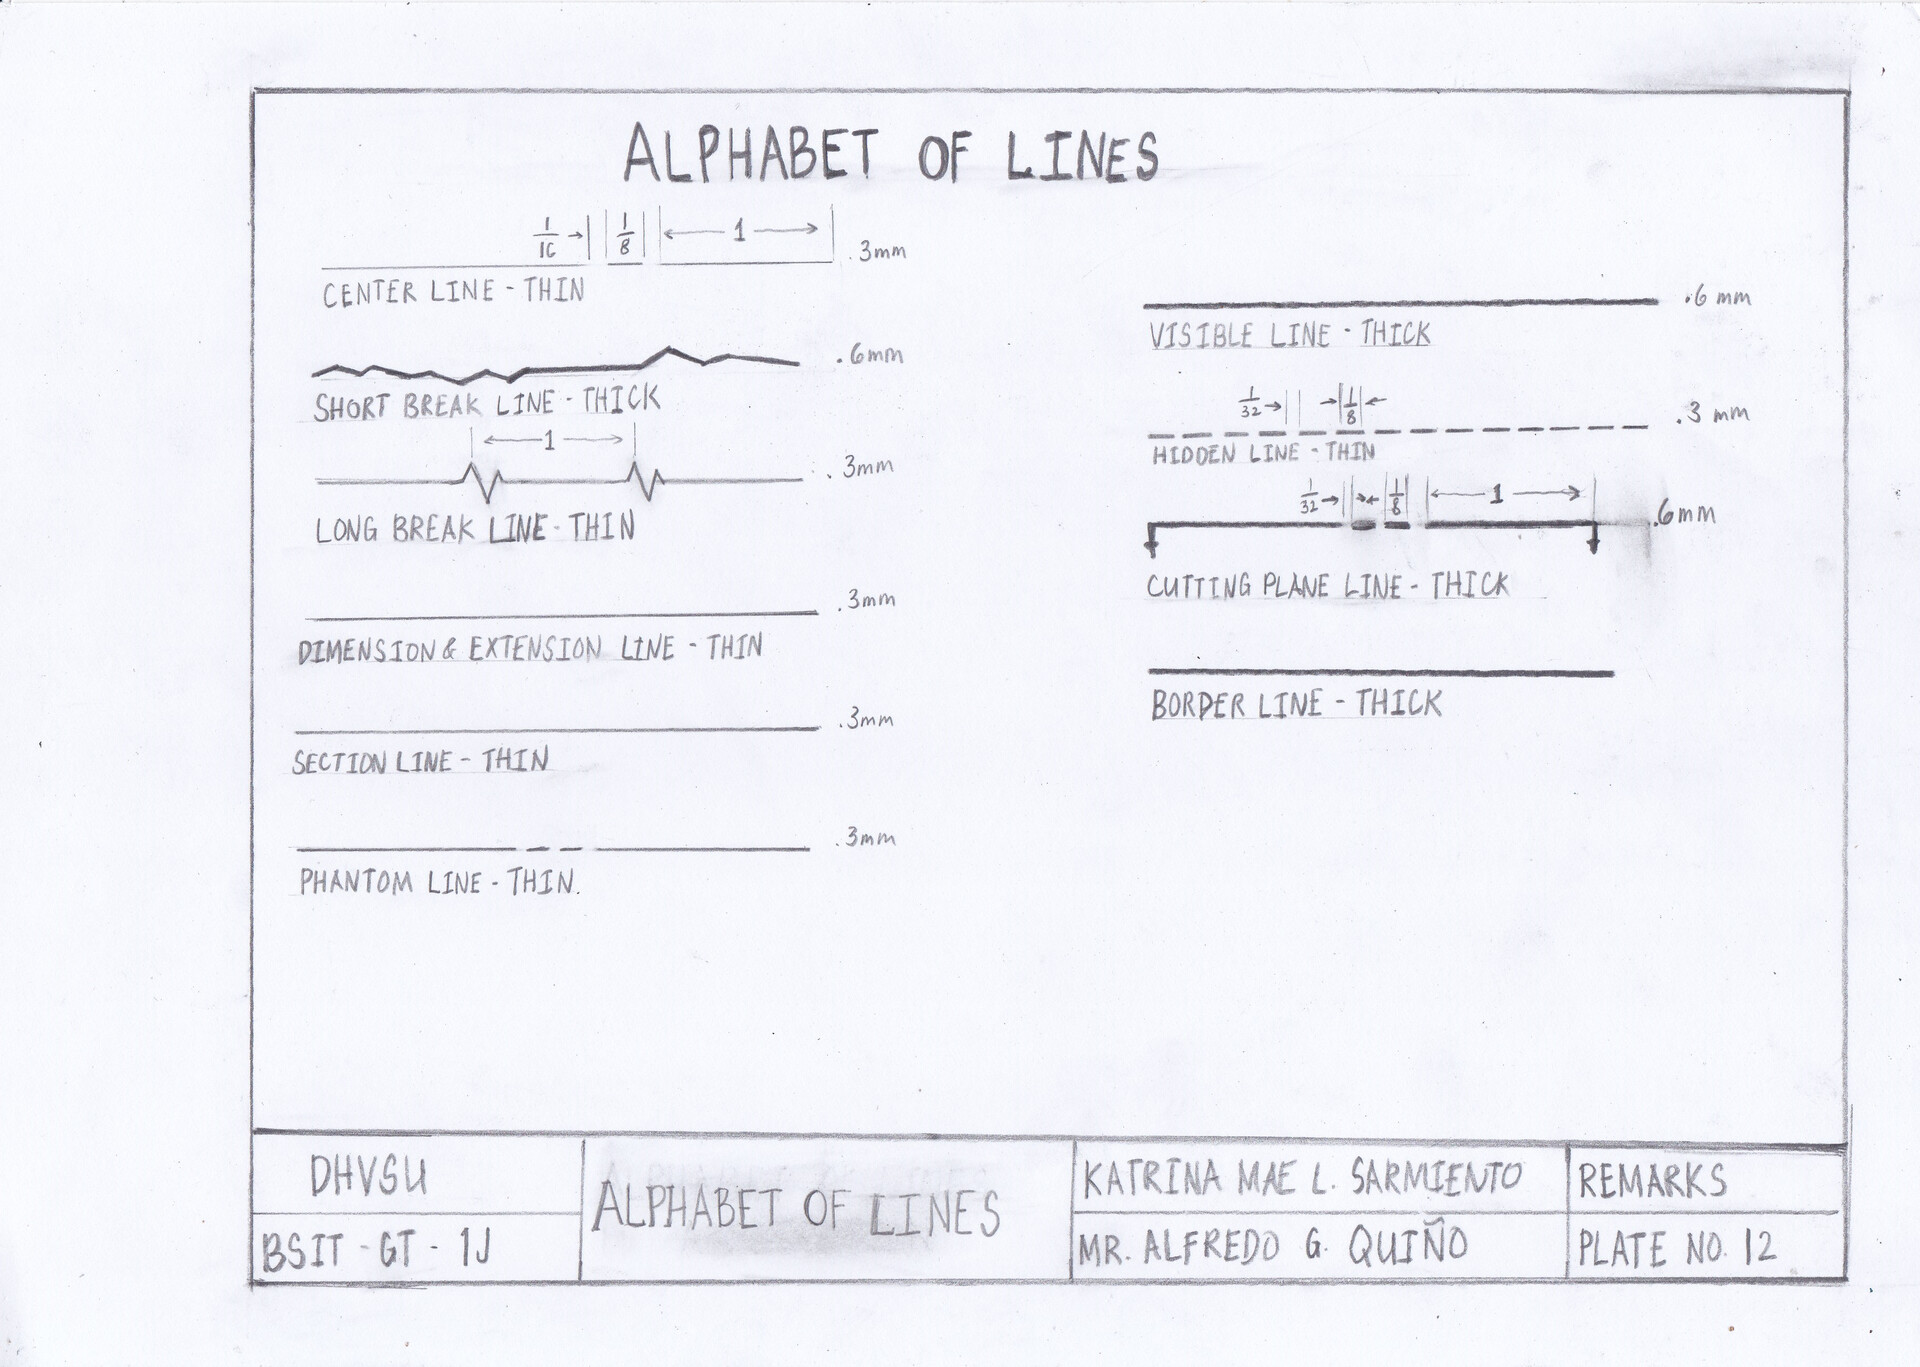 ALPHABET OF LINES
1/16 1/8 1 .3mm
CENTER LINE - THIN
.6mm
SHORT BREAK LINE - THICK
1
.3mm
LONG BREAK LINE - THIN
.3mm
DIMENSION & EXTENSION LINE - THIN
.3mm
SECTION LINE - THIN
.3mm
PHANTOM LINE - THIN.
.6 mm
VISIBLE LINE - THICK
1/32 1/8 .3 mm
HIDDEN LINE - THIN
1/32 1/8 1 .6mm
CUTTING PLANE LINE - THICK
BORDER LINE - THICK
DHVSU
BSIT - GT - 1J
ALPHABET OF LINES
KATRINA MAE L. SARMIENTO
MR. ALFREDO G. QUIÑO
REMARKS
PLATE NO. 12